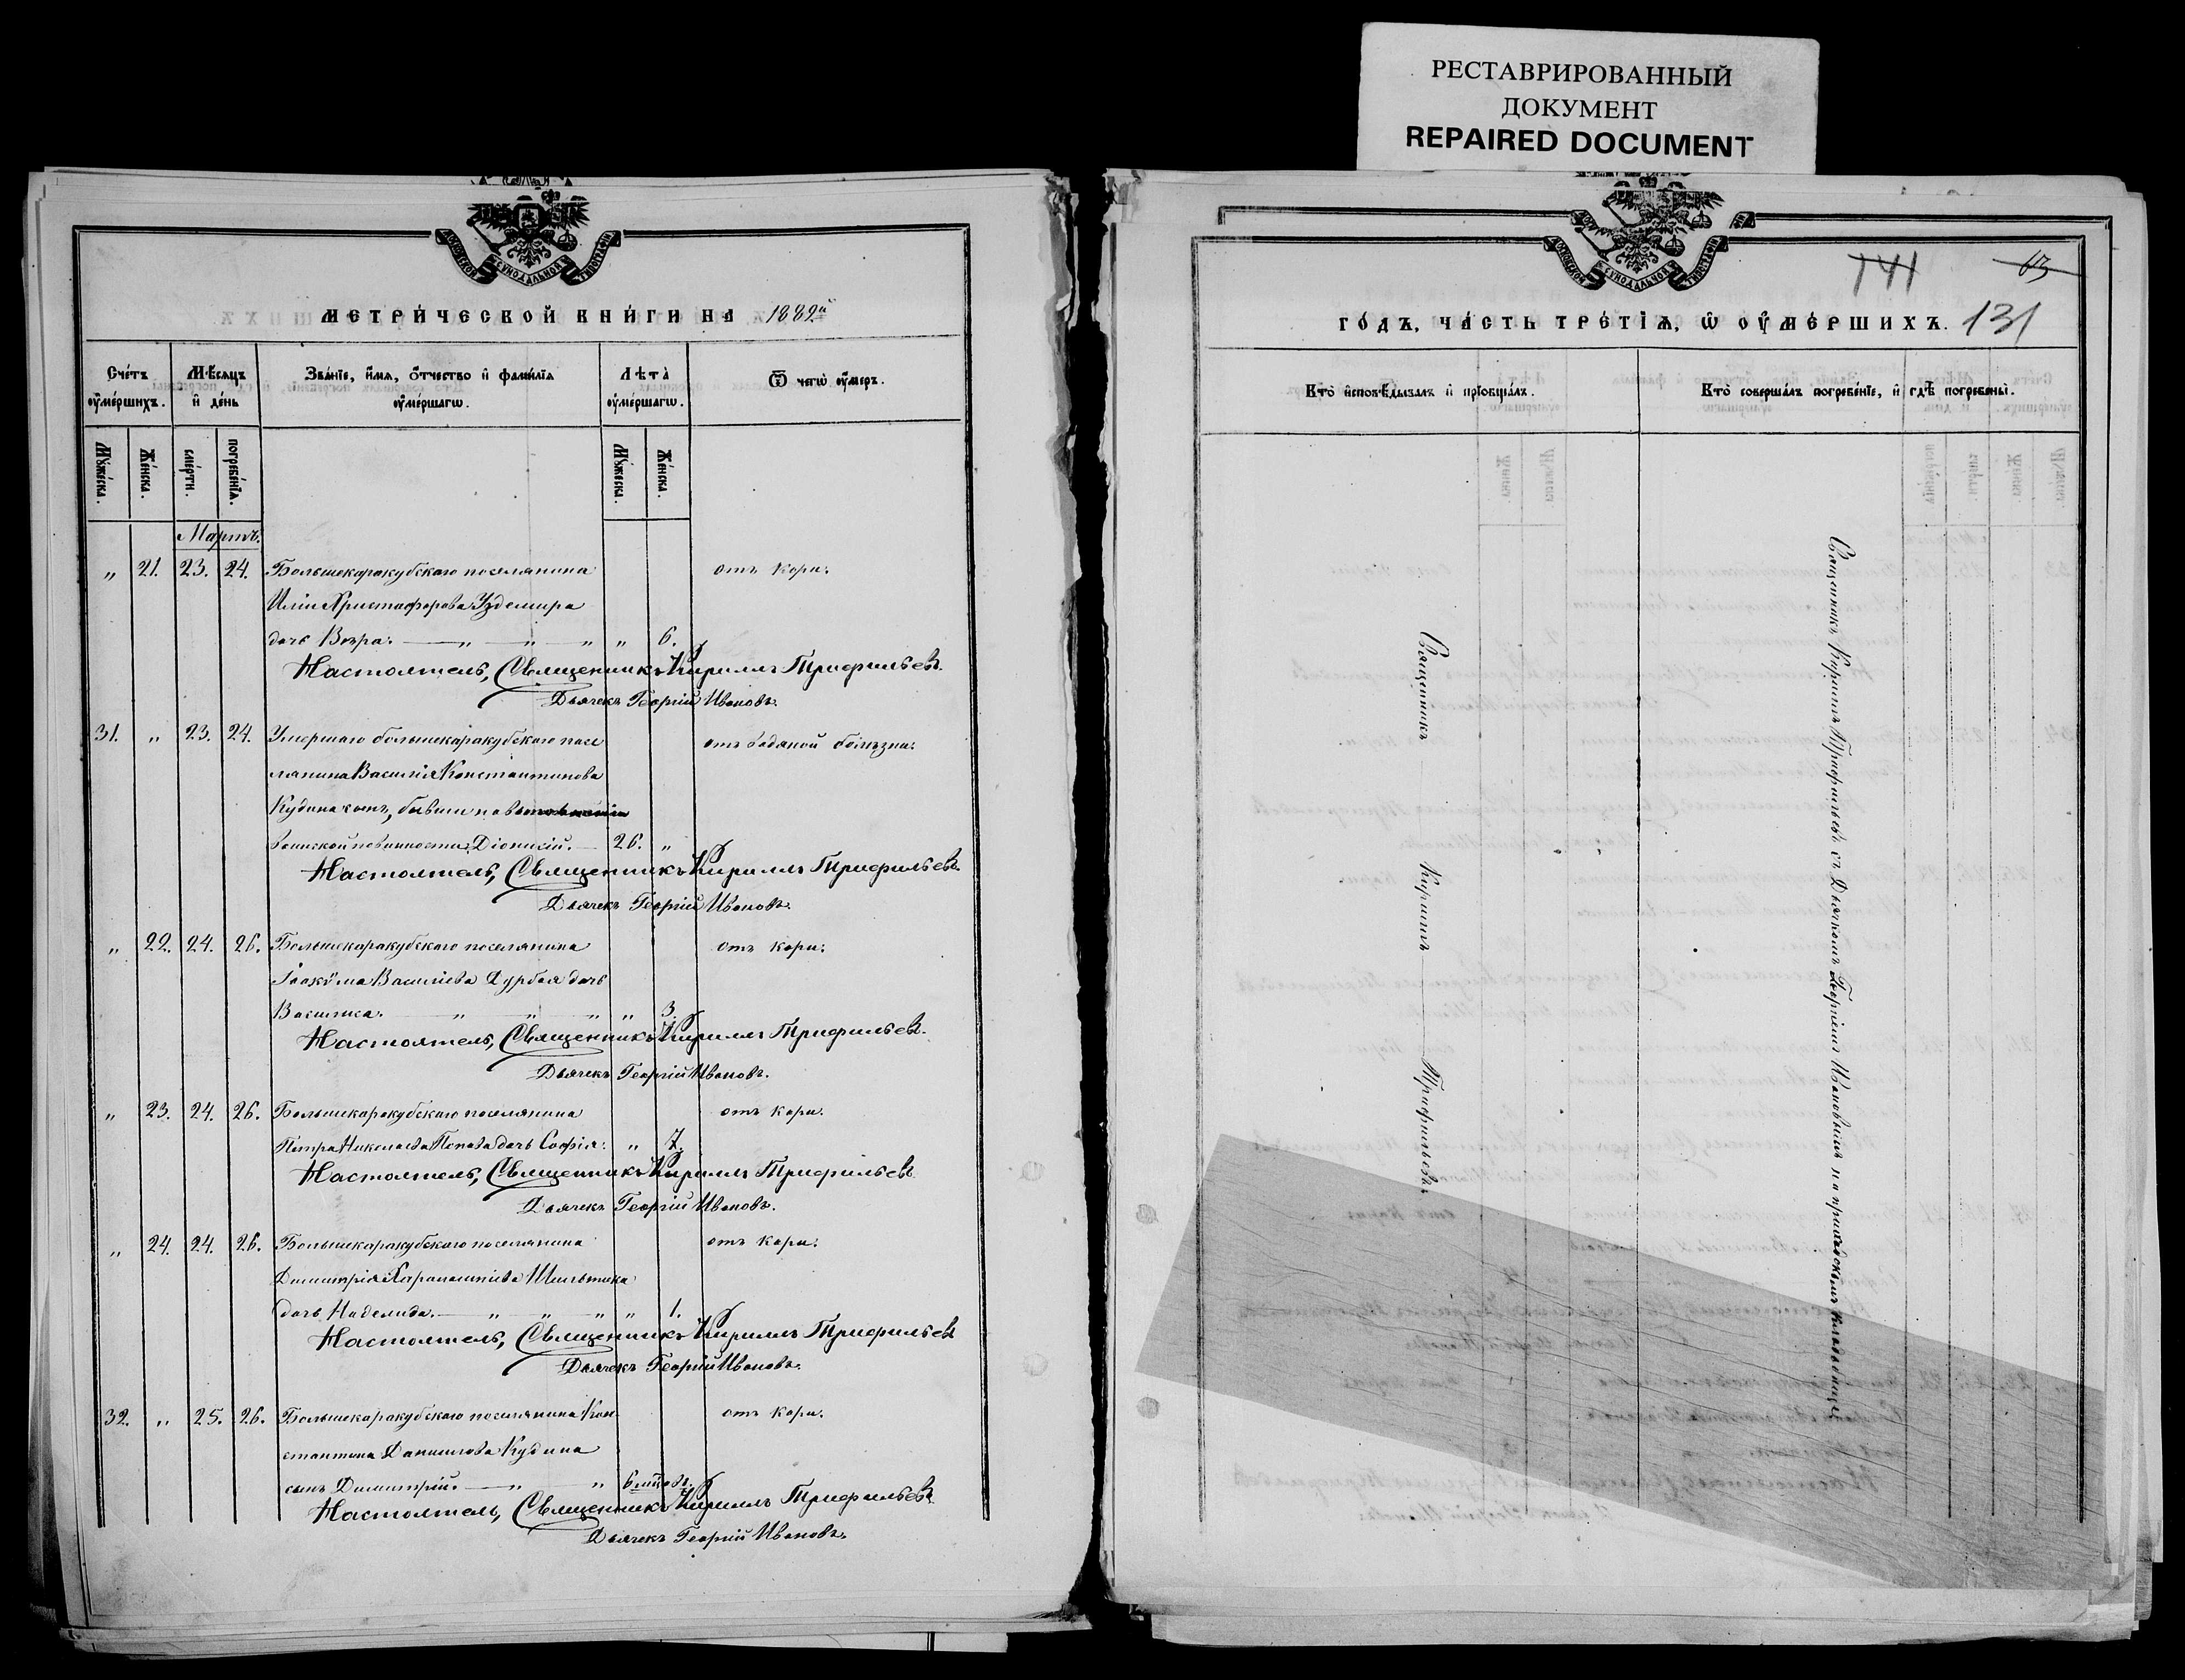 РЕСТАВРИРОВАННЫЙ
ДОКУМЕНТ
REPAIRED DOCUMENT
МЕТРИ́ЧЕСКОЙ КНИ́ГИ НА 1882й
Сче́тъ ᲂу҆ме́ршихъ.
Мѣ́сяцъ и҆ де́нь
Зва́нїе, и҆́мѧ, ѻ҆́тчество и҆ фами́лїѧ ᲂу҆ме́ршагѡ.
Лѣта̀ ᲂу҆ме́ршагѡ.
Ѿ чегѡ̀ ᲂу҆́меръ.
Мꙋ́жеска.
Же́нска.
сме́рти.
погребе́нїѧ.
Мꙋ́жеска.
Же́нска.
Мартъ.
„ 21. 23. 24. Большекаракубскаго поселянина отъ кори.
Иліи Христофорова Уздемира
дочь Вѣра. — „ — „ — „ „ 6.
Настоятель, Священникъ Кириллъ Трифильевъ.
Дьячекъ Георгій Ивановъ.
31. „ 23. 24. Умершаго большекаракубскаго посе отъ водяной болѣзни.
лянина Василія Константинова
Кудина сынъ, бывши
воинской повинности, Діонисій. — 26. „
Настоятель, Священникъ Кириллъ Трифильевъ.
Дьячекъ Георгій Ивановъ.
„ 22. 24. 26. Большекаракубскаго поселянина отъ кори.
Іоакѵма Василіева Дурбая дочь
Василиса. „ „ „ „ 3.
Настоятель, Священникъ Кириллъ Трифильевъ.
Дьячекъ Георгій Ивановъ.
„ 23. 24. 26. Большекаракубскаго поселянина отъ кори.
Петра Николаева Попова дочь Софія. „ 7.
Настоятель, Священникъ Кириллъ Трифильевъ.
Дьячекъ Георгій Ивановъ.
„ 24. 24. 26. Большекаракубскаго поселянина отъ кори.
Димитрія Харлампіева
дочь — „ — „ — „ „ 1.
Настоятель, Священникъ Кириллъ Трифильевъ
Дьячекъ Георгій Ивановъ.
32. „ 25. 26. Большекаракубскаго поселянина Кон отъ кори.
стантина Даниилова Кудина
сынъ Димитрій. — „ — „ 6 мѣсяц.
Настоятель, Священникъ Кириллъ Трифильевъ.
Дьячекъ Георгій Ивановъ.
141 63
ГО́ДЪ, ЧА́СТЬ ТРЕ́ТЇѦ, Ѡ҆ ОУ҆МЕ́РШИХЪ. 131
Кто̀ и҆сповѣ́дывалъ и҆ прїѡбща́лъ.
Кто̀ соверша́лъ погребе́нїе, и҆ гдѣ̀ погребены̀.
Священникъ Кириллъ Трифильевъ.
Священникъ Кириллъ Трифильевъ съ Дьячкомъ Георгіемъ Ивановымъ на приходскомъ кладбище.